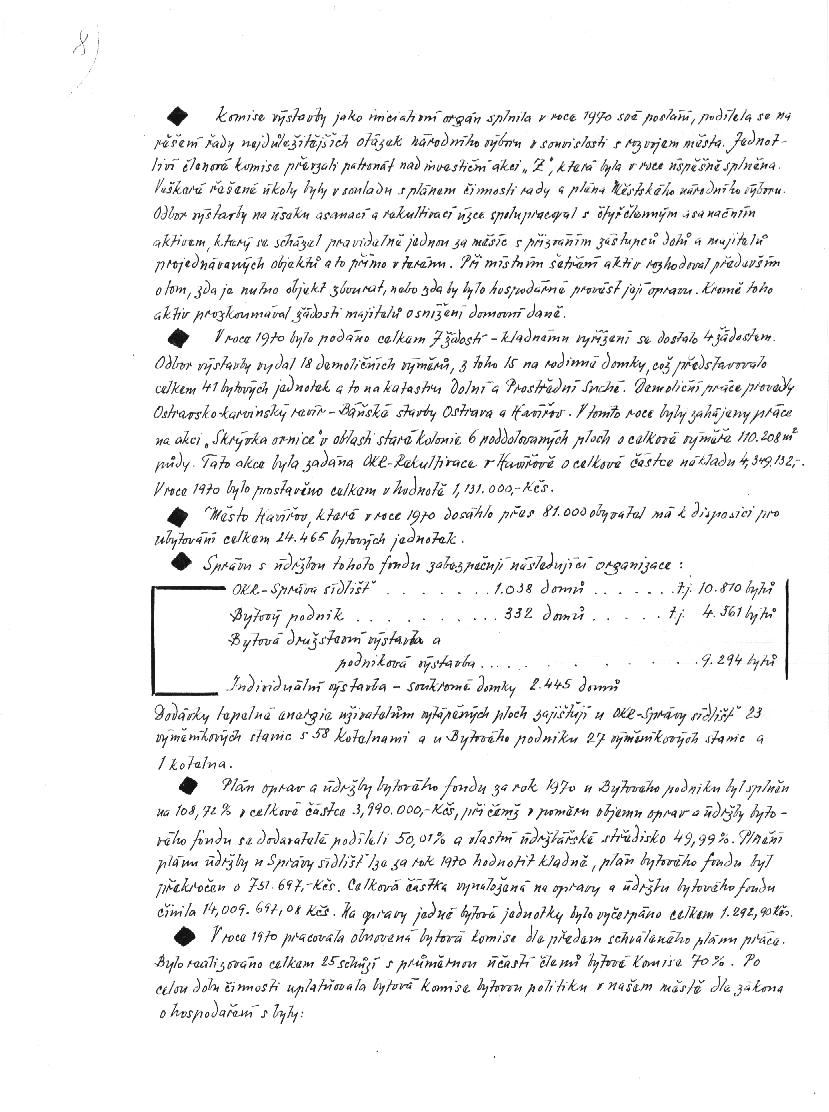 8)
◆ Komise výstavby jako iniciativní orgán splnila v roce 1970 své poslání, podílela se na
řešení řady nejdůležitějších otázek národního výboru v souvislosti s rozvojem města. Jednot-
liví členové komise převzali patronát nad investiční akcí „Z", která byla v roce úspěšně splněna.
Veškeré řešené úkoly byly v souladu s plánem činnosti rady a pléna Městského národního výboru.
Odbor výstavby na úseku asanací a rekultivací úzce spolupracoval s čtyřčlenným asanačním
aktivem, který se scházel pravidelně jednou za měsíc s přizváním zástupců dolů a majitelů
projednávaných objektů a to přímo v terénu. Při místním šetření aktiv rozhodoval především
o tom, zda je nutno objekt zbourat, nebo zda by bylo hospodárné provést její opravu. Kromě toho
aktiv prozkoumával žádosti majitelů o snížení domovní daně.
◆ V roce 1970 bylo podáno celkem 7 žádostí – kladnému vyřízení se dostalo 4 žádostem.
Odbor výstavby vydal 18 demoličních výměrů, z toho 15 na rodinné domky, což představovalo
celkem 41 bytových jednotek a to na katastru Dolní a Prostřední Suché. Demoliční práce provedly
Ostravsko-karvinský revír – Báňské stavby Ostrava a Havířov. V tomto roce byly zahájeny práce
na akci „Skrývka ornice" v oblasti staré kolonie 6 poddolovaných ploch o celkové výměře 110.208 m²
půdy. Tato akce byla zadána OKR-Rekultivace v Havířově o celkové částce nákladu 4,349.132,-.
V roce 1970 bylo prostavěno celkem v hodnotě 1,131.000,- Kčs.
◆ Město Havířov, které v roce 1970 dosáhlo přes 81.000 obyvatel má k disposici pro
ubytování celkem 24.465 bytových jednotek.
◆ Správu s údržbou tohoto fondu zabezpečují následující organizace :
OKR-Správa sídlišť . . . . . . . . 1.038 domů . . . . . . . tj. 10.810 bytů
Bytový podnik . . . . . . . . . . 332 domů . . . . . tj. 4.361 bytů
Bytová družstevní výstavba a
podniková výstavba . . . . . . . . . . 9.294 bytů
Individuální výstavba – soukromé domky 2.445 domů
Dodávky tepelné energie uživatelům vytápěných ploch zajišťují u OKR-Správy sídlišť 23
výměníkových stanic s 58 kotelnami a u Bytového podniku 27 výměníkových stanic a
1 kotelna.
◆ Plán oprav a údržby bytového fondu za rok 1970 u Bytového podniku byl splněn
na 108,72 % v celkové částce 3,990.000,- Kčs, při čemž v poměru objemu oprav a údržby byto-
vého fondu se dodavatelé podíleli 50,01 % a vlastní údržbářské středisko 49,99 %. Plnění
plánu údržby u Správy sídlišť lze za rok 1970 hodnotit kladně, plán bytového fondu byl
překročen o 731.697,- Kčs. Celková částka vynaložená na opravy a údržbu bytového fondu
činila 14,009.697,08 Kčs. Na opravy jedné bytové jednotky bylo vyčerpáno celkem 1.292,90 Kčs.
◆ V roce 1970 pracovala obnovená bytová komise dle předem schváleného plánu práce.
Bylo realizováno celkem 25 schůzí s průměrnou účastí členů bytové komise 70 %. Po
celou dobu činnosti uplatňovala bytová komise bytovou politiku v našem městě dle zákona
o hospodaření s byty: